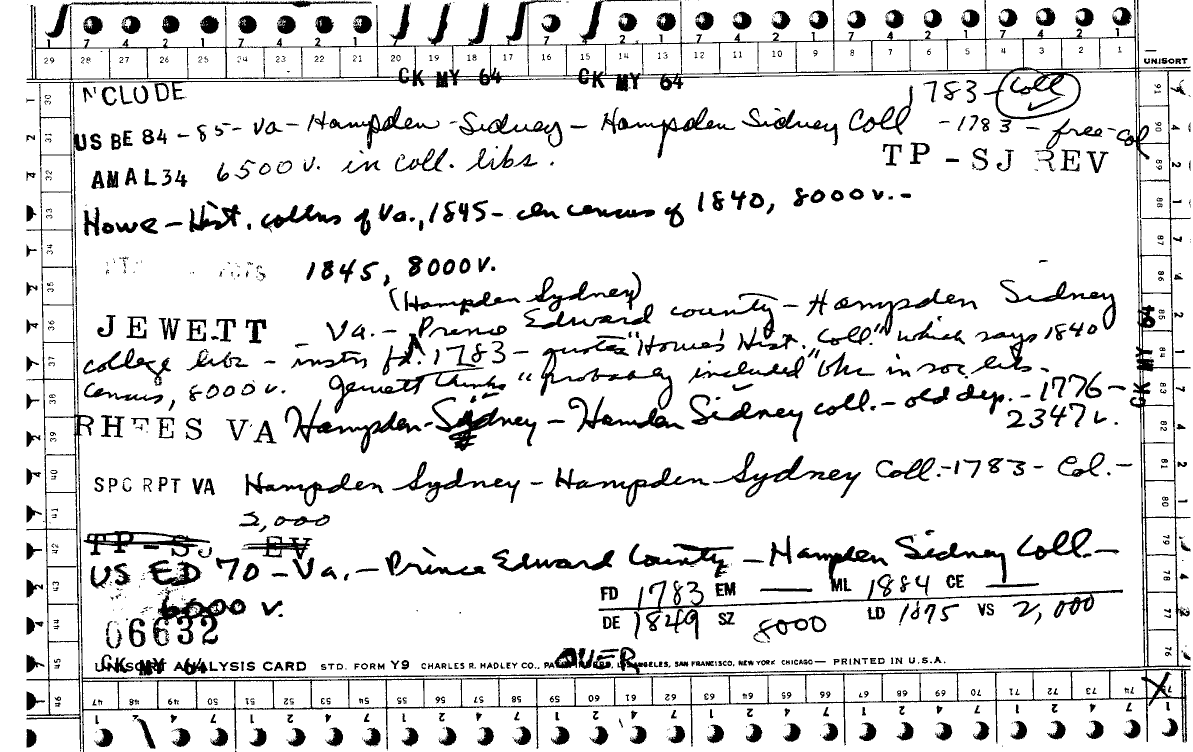 7 4 2 1 7 4 2 1 7 4 2 1 7 4 2 1 7 4 2 1
29 28 27 26 25 24 23 22 21 20 19 18 17 16 15 14 13 12 11 10 9 8 7 6 5 4 3 2 1
UNISORT
CK MY 64 CK MY 64
NCLODE 1783 - Coll
US BE 84 - 85 - Va - Hampden - Sidney - Hampden Sidney Coll - 1783 - free - col
TP - SJ REV
AMAL34 6500 v. in coll. libs.
Howe - Hist. collns of Va., 1845 - cen census of 1840, 8000 v. -
1845, 8000 v.
(Hampden Sydney)
JEWETT - Va. - Prince Edward county - Hampden Sidney
college libr - instn fd. 1783 - quotes "Howe's Hist. Coll." which says 1840
census, 8000 v. Jewett thinks "probably included" bks in soc. libs.
RHEES VA Hampden - Sidney - Hamden Sidney coll. - old dep. - 1776 -
2347 v.
SPC RPT VA Hampden Sydney - Hampden Sydney Coll. - 1783 - Col. -
2,000
TP - SJ EV
US ED 70 - Va. - Prince Edward County - Hampden Sidney Coll. -
6000 v.
FD 1783 EM — ML 1884 CE —
DE 1849 SZ 8000 LD 1875 VS 2,000
06632
OVER
CK MY 64
UNISORT ANALYSIS CARD STD. FORM Y9 CHARLES R. HADLEY CO., LOS ANGELES, SAN FRANCISCO, NEW YORK CHICAGO — PRINTED IN U.S.A.
CK MY 64
47 48 49 50 51 52 53 54 55 56 57 58 59 60 61 62 63 64 65 66 67 68 69 70 71 72 73 74